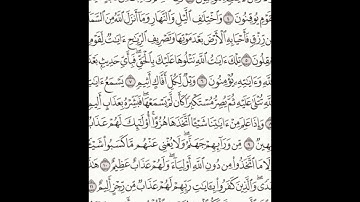 قَوْمٍ يُوقِنُونَ ٤ وَٱخْتِلَٰفِ ٱلَّيْلِ وَٱلنَّهَارِ وَمَآ أَنزَلَ ٱللَّهُ مِنَ ٱلسَّمَا
مِن رِّزْقٍ فَأَحْيَا بِهِ ٱلْأَرْضَ بَعْدَ مَوْتِهَا وَتَصْرِيفِ ٱلرِّيَٰحِ ءَايَٰتٌ لِّقَوْمٍ
قِلُونَ ٥ تِلْكَ ءَايَٰتُ ٱللَّهِ نَتْلُوهَا عَلَيْكَ بِٱلْحَقِّۖ فَبِأَيِّ حَدِيثٍۭ بَعْدَ
للَّهِ وَءَايَٰتِهِۦ يُؤْمِنُونَ ٦ وَيْلٌ لِّكُلِّ أَفَّاكٍ أَثِيمٍ ٧ يَسْمَعُ ءَايَٰتِ
هِ تُتْلَىٰ عَلَيْهِ ثُمَّ يُصِرُّ مُسْتَكْبِرًا كَأَن لَّمْ يَسْمَعْهَاۖ فَبَشِّرْهُ بِعَذَابٍ أَلِيمٍ
٨ وَإِذَا عَلِمَ مِنْ ءَايَٰتِنَا شَيْـًٔا ٱتَّخَذَهَا هُزُوًاۚ أُو۟لَٰٓئِكَ لَهُمْ عَذَابٌ
هِينٌ ٩ مِّن وَرَآئِهِمْ جَهَنَّمُۖ وَلَا يُغْنِى عَنْهُم مَّا كَسَبُوا۟ شَيْـًٔا
لَا مَا ٱتَّخَذُوا۟ مِن دُونِ ٱللَّهِ أَوْلِيَآءَۖ وَلَهُمْ عَذَابٌ عَظِيمٌ ١٠
دًىۖ وَٱلَّذِينَ كَفَرُوا۟ بِـَٔايَٰتِ رَبِّهِمْ لَهُمْ عَذَابٌ مِّن رِّجْزٍ أَلِيمٌ